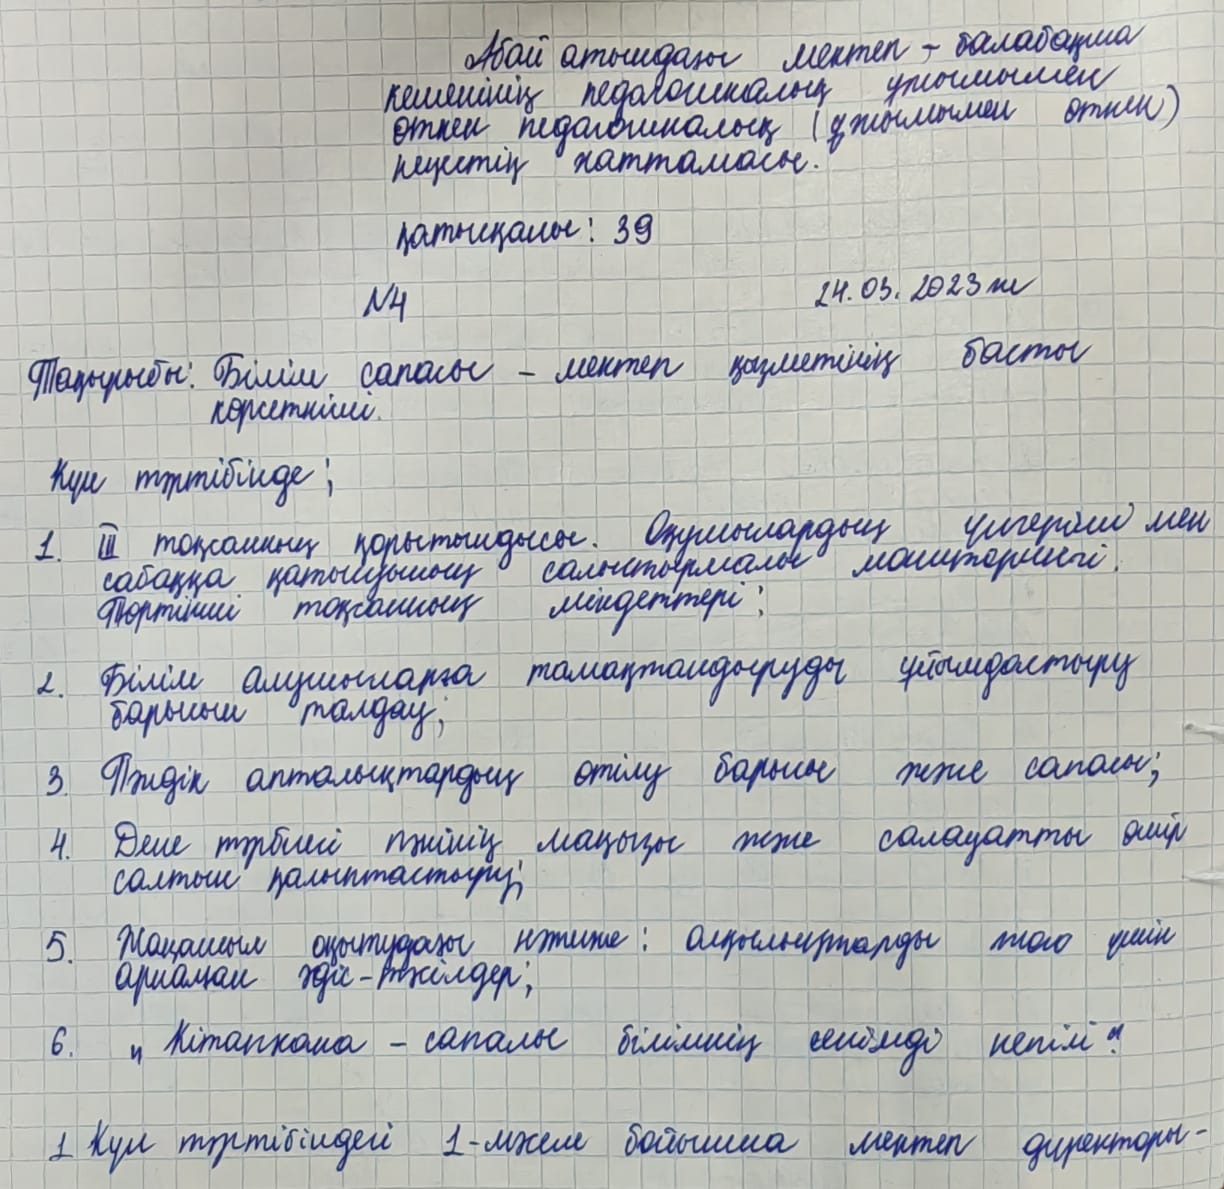 Абай атындағы мектеп - балабақша
кешенінің педагогикалық ұжымымен
өткен педагогикалық (ұжымымен өткен)
кеңестің хаттамасы.
қатысқаны: 39
N4
24.03.2023 ж
Тақырыбы: Білім сапасы - мектеп қызметінің басты
көрсеткіші.
Күн тәртібінде;
1. III тоқсанның қорытындысы. Оқушылардың үлгерімі мен
сабаққа қатысуының салыстырмалы мониторингі.
Төртінші тоқсанның міндеттері;
2. Білім алушыларға тамақтандыруды ұйымдастыру
барысын талдау;
3. Пәндік апталықтардың өтілу барысы және сапасы;
4. Дене тәрбиесі пәнінің маңызы және салауатты өмір
салтын қалыптастыру;
5. Жаңашыл оқытудағы нәтиже: олқылықтарды жою үшін
арналған әдіс-тәсілдер;
6. „Кітапхана - сапалы білімнің сенімді кепілі".
1 Күн тәртібіндегі 1-мәселе бойынша мектеп директоры-